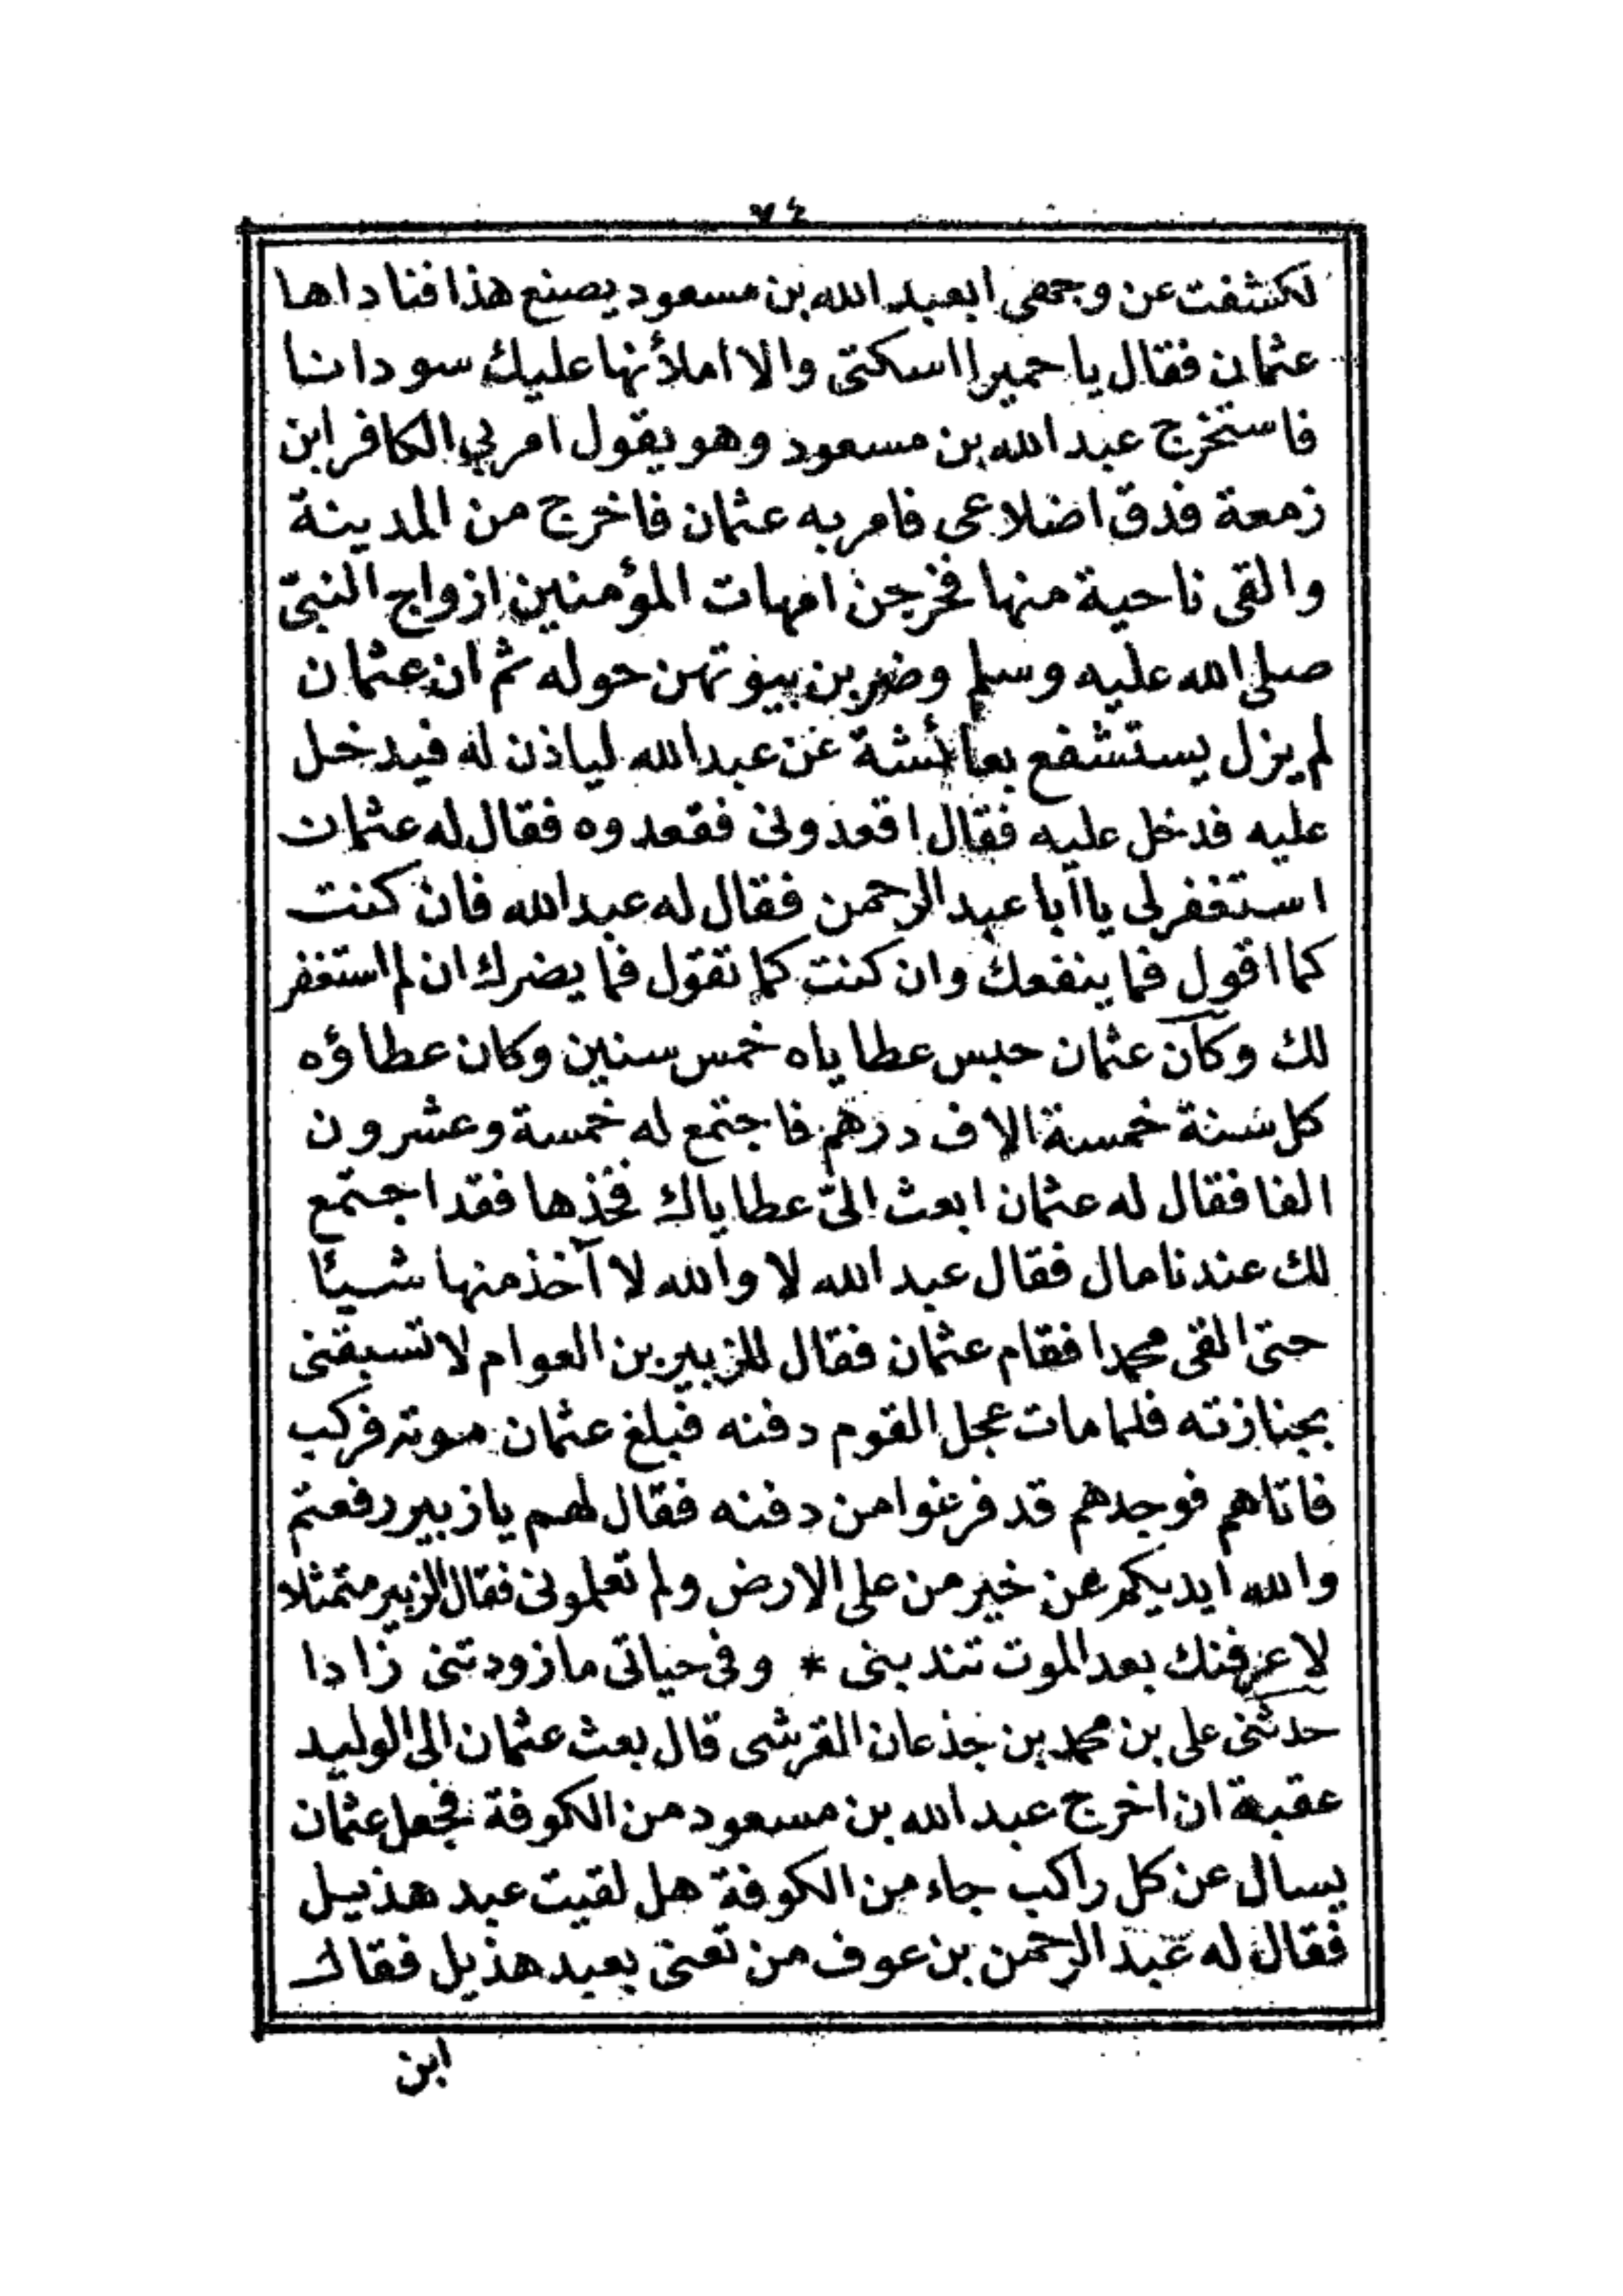 ٧٤
لكشفت عن وجهى ابعبد الله بن مسعود يصنع هذا فناداها
عثمان فقال يا حميرا اسكتى والا املأنها عليك سودانا
فاستخرج عبد الله بن مسعود وهو يقول امر بي الكافر ابن
زمعة فدق اضلاعى فامر به عثمان فاخرج من المدينة
والقى ناحية منها فخرجن امهات المؤمنين ازواج النبىّ
صلى الله عليه وسلم وضربن بيوتهن حوله ثم ان عثمان
لم يزل يستشفع بعائشة عن عبد الله لياذن له فيدخل
عليه فدخل عليه فقال اقعدونى فقعدوه فقال له عثمان
استغفرلى يا آبا عبد الرحمن فقال له عبد الله فان كنت
كما اقول فما ينفعك وان كنت كما تقول فما يضرك ان لم استغفر
لك وكان عثمان حبس عطاياه خمس سنين وكان عطاؤه
كل سنة خمسة الاف درهم فاجتمع له خمسة وعشرون
الفا فقال له عثمان ابعث الىّ عطاياك فخذها فقد اجتمع
لك عندنا مال فقال عبد الله لا والله لا آخذ منها شيئا
حتى القى محمدا فقام عثمان فقال للزبير بن العوام لا تسبقنى
بجنازته فلما مات عجل القوم دفنه فبلغ عثمان موته فركب
فاتاهم فوجدهم قد فرغوا من دفنه فقال لهم يا زبير رفعتم
والله ايديكم عن خير من على الارض ولم تعلمونى فقال الزبير متمثلا
لا عرفنك بعد الموت تندبنى * وفى حياتى ما زودتنى زادا
حدثنى على بن محمد بن جذعان القرشى قال بعث عثمان الى الوليد
عقبة ان اخرج عبد الله بن مسعود من الكوفة فجعل عثمان
يسال عن كل راكب جاء من الكوفة هل لقيت عبد هذيل
فقال له عبد الرحمن بن عوف من تعنى بعبد هذيل فقال
ابن